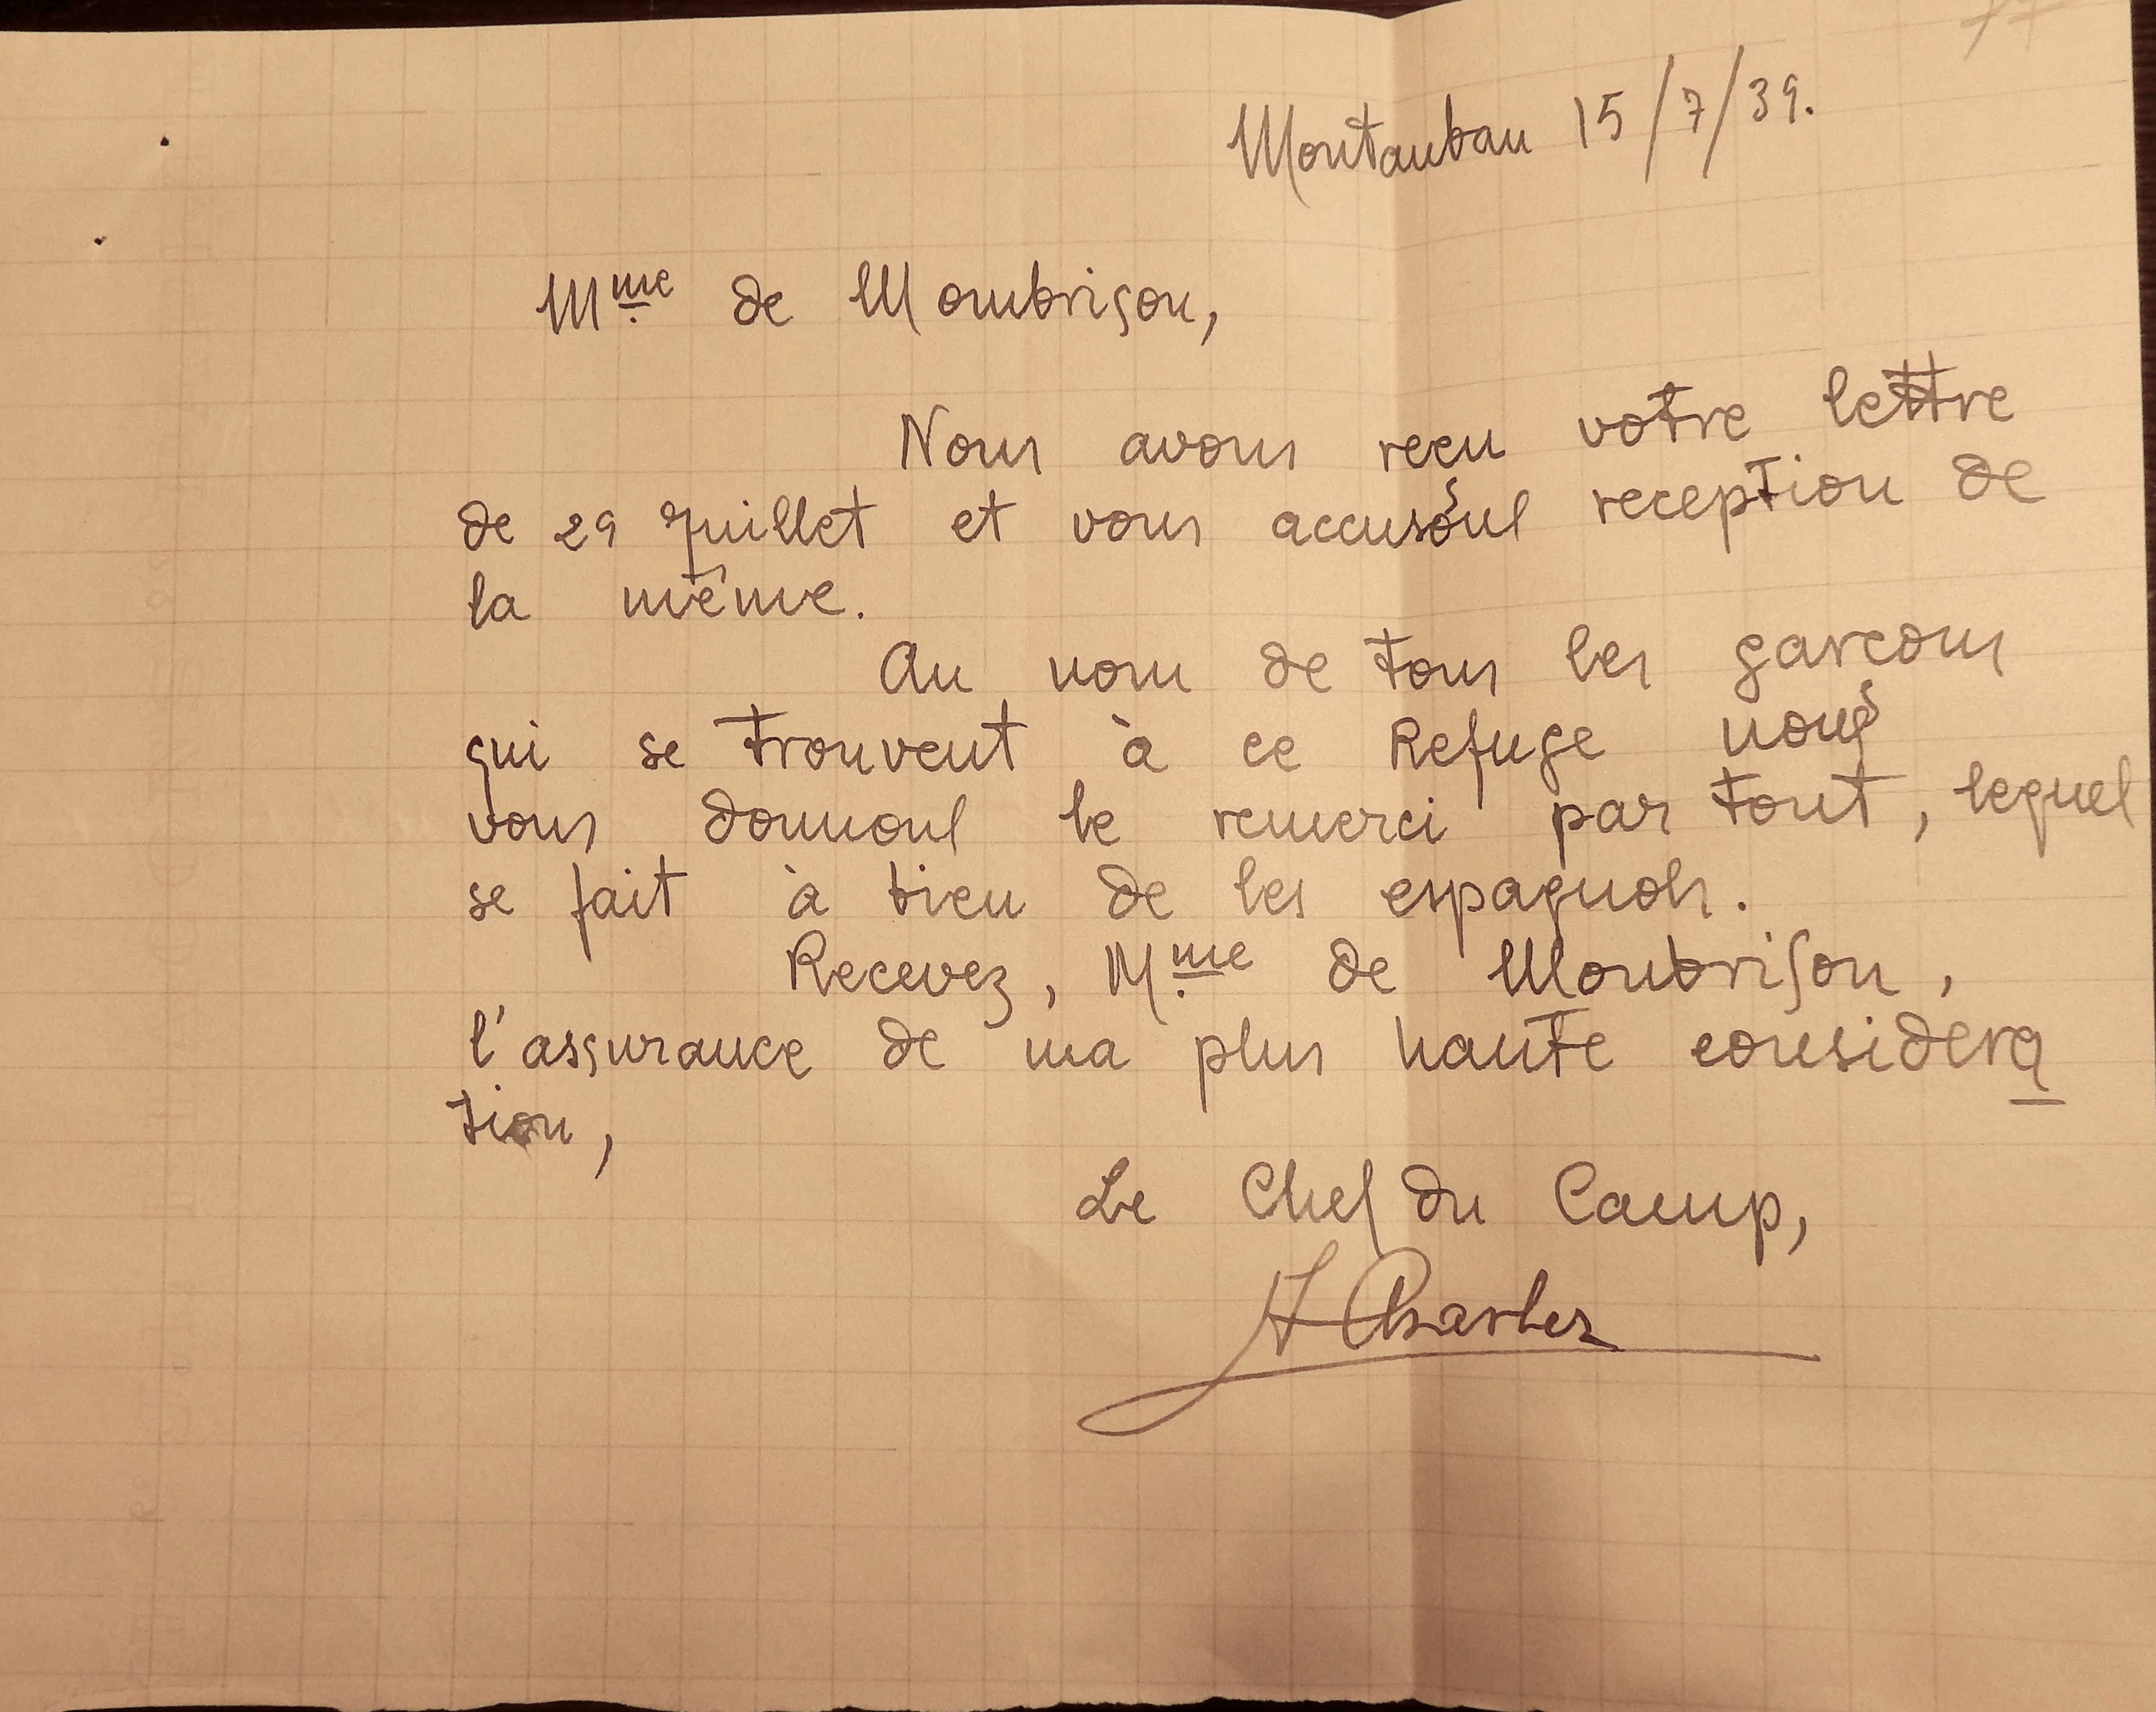 Montauban 15/7/39.
Mme de Mombrison,
Nous avons reçu votre lettre
de 29 Juillet et vous accusons reception de
la même.
Au nom de tous les garcons
qui se trouvent à ce Refuge nous
vous donnons le remerci par tout, lequel
se fait à bien de les espagnols.
Recevez, Mme de Monbrison,
l'assurance de ma plus haute considera
tion,
Le Chef du Camp,
Charles